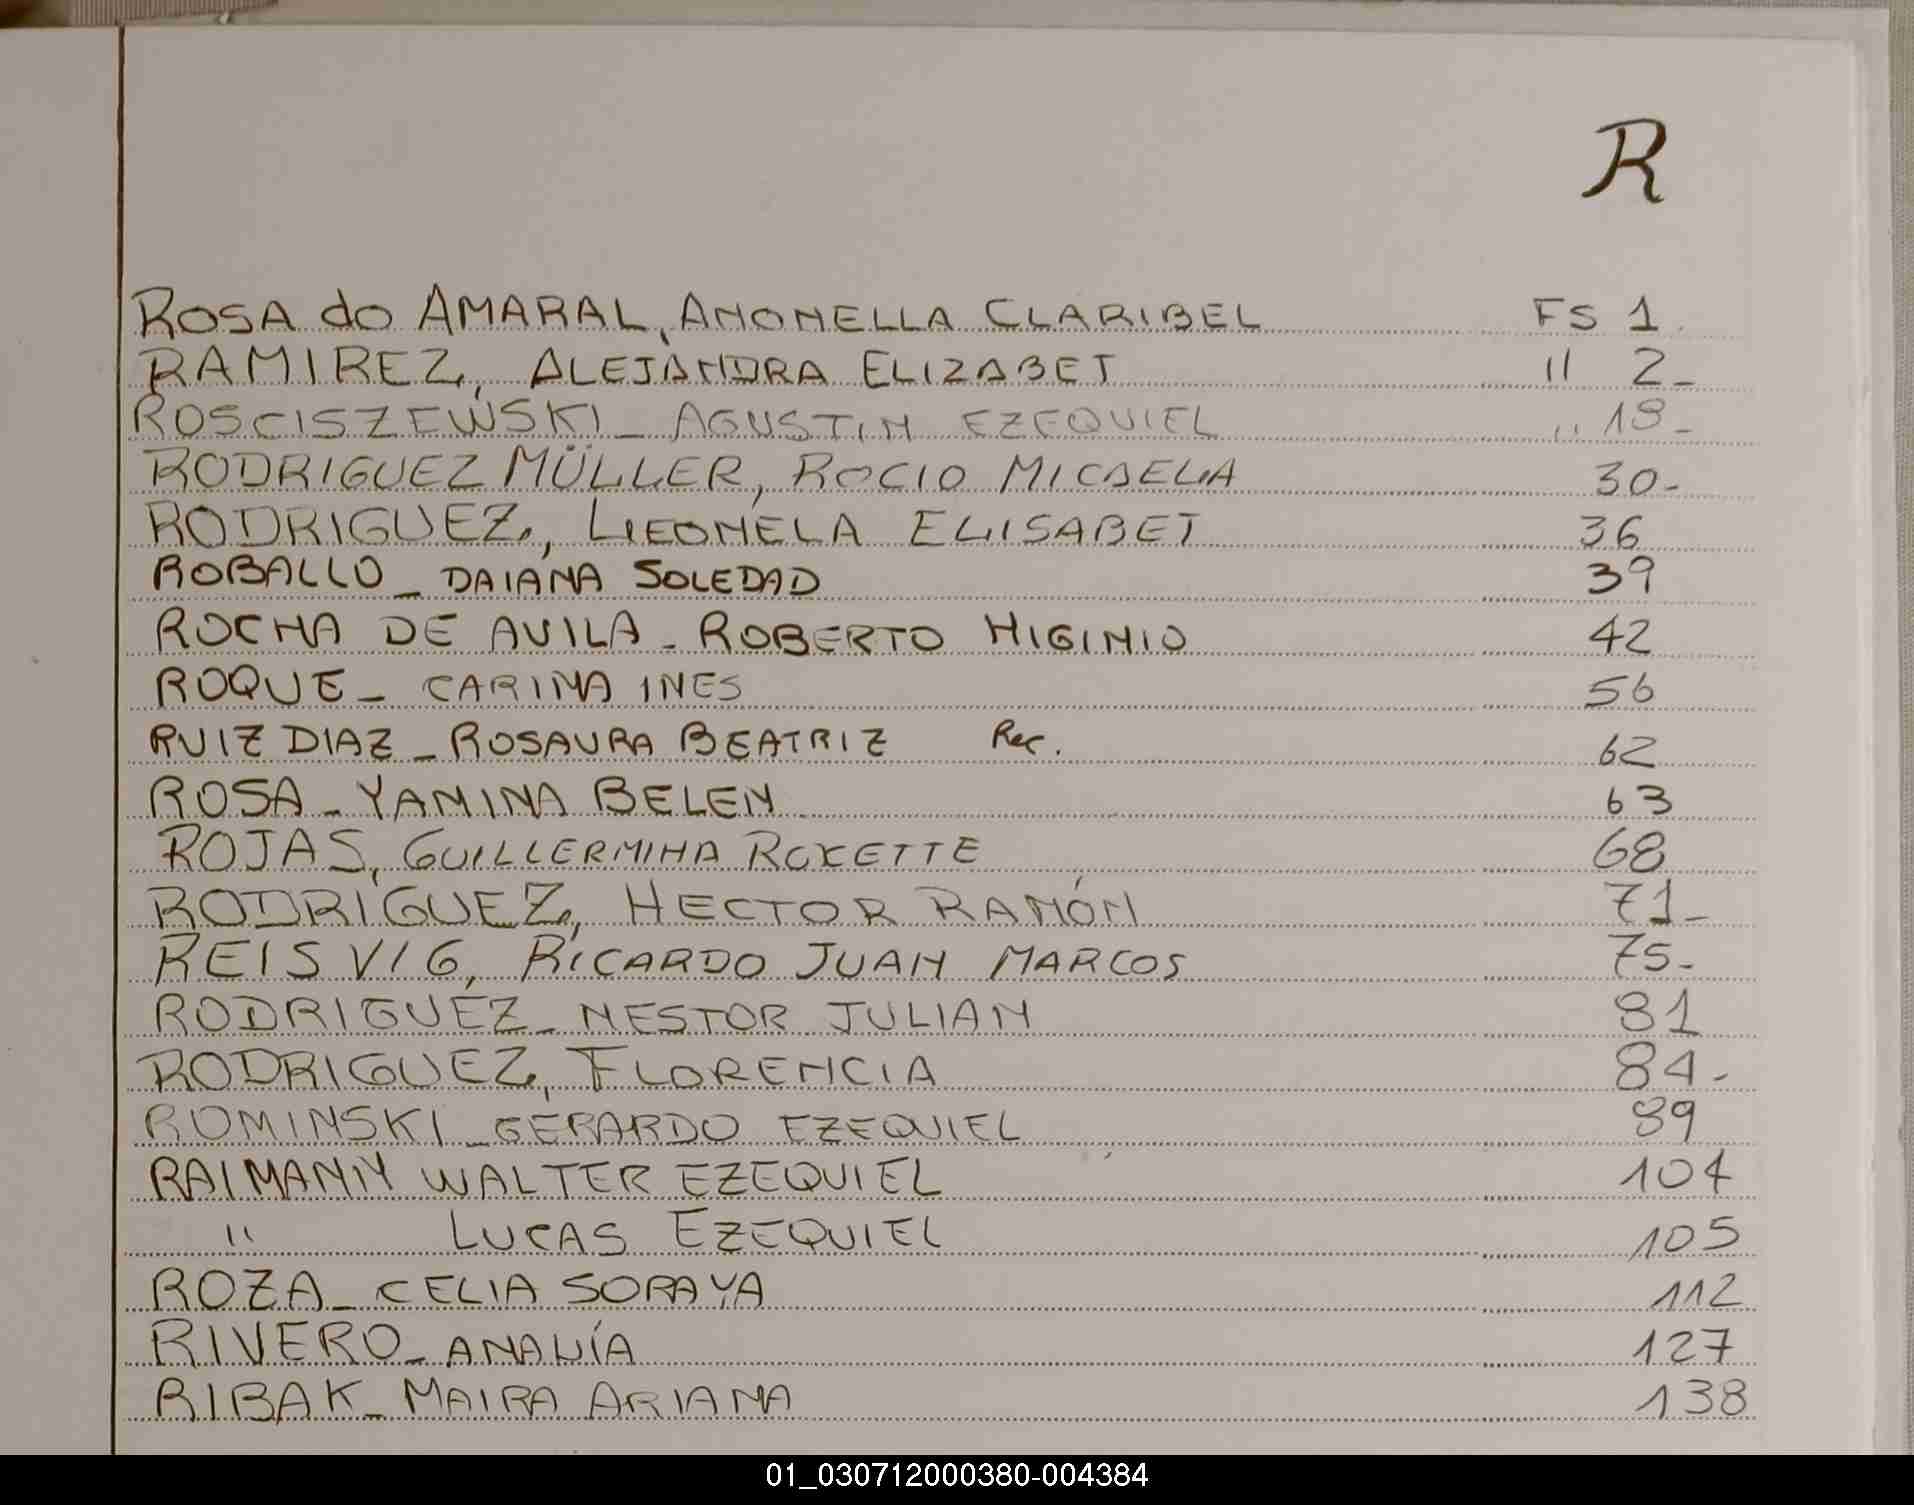 R
ROSA do AMARAL, ANONELLA CLARIBEL FS 1
RAMIREZ, ALEJANDRA ELIZABET 11 2_
ROSCISZEWSKI_ AGUSTIN EZEQUIEL ,, 18_
RODRIGUEZ MÜLLER, ROCIO MICAELA 30-
RODRIGUEZ, LEONELA ELISABET 36
ROBALLO_ DAIANA SOLEDAD 39
ROCHA DE AVILA_ ROBERTO HIGINIO 42
ROQUE_ CARINA INES 56
RUIZ DIAZ_ ROSAURA BEATRIZ Rec. 62
ROSA_ YAMINA BELEN 63
ROJAS, GUILLERMINA ROXETTE 68
RODRIGUEZ, HECTOR RAMÓN 71_
REIS VIG, RICARDO JUAN MARCOS 75-
RODRIGUEZ_ NESTOR JULIAN 81
RODRIGUEZ, FLORENCIA 84-
ROMINSKI_ GERARDO EZEQUIEL 89
RAIMANN WALTER EZEQUIEL 104
" LUCAS EZEQUIEL 105
ROZA_ CELIA SORAYA 112
RIVERO_ ANALÍA 127
RIBAK_ MAIRA ARIANA 138
01_030712000380-004384